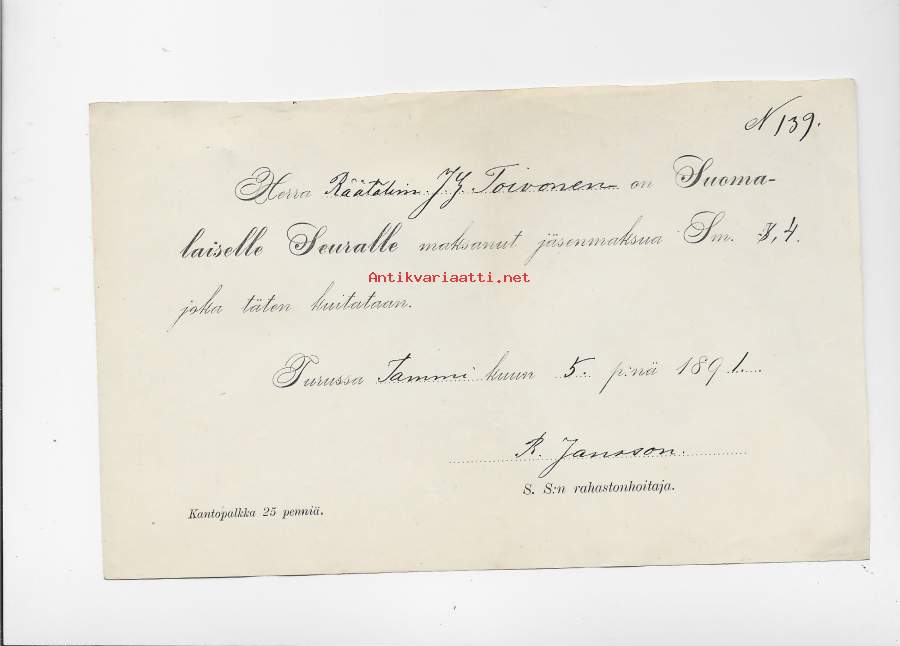 N 139.
Herra Räätälim. J.H. Toivonen on Suoma-
laiselle Seuralle maksanut jäsenmaksua Sm. 4.
Antikvariaatti.net
joka täten kuitataan.
Turussa Tammi kuun 5. p:nä 1891.
R. Jansson.
S. S:n rahastonhoitaja.
Kantopalkka 25 penniä.